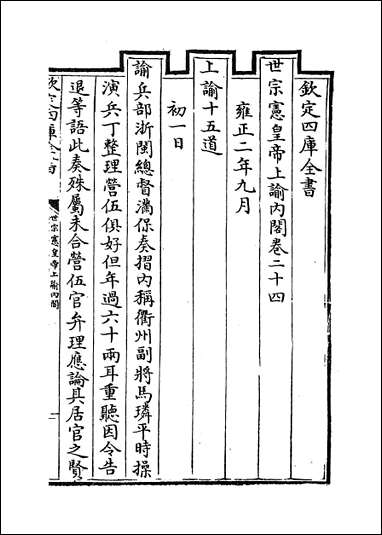 欽定四庫全書
世宗憲皇帝上諭內閣卷二十四
雍正二年九月
上諭十五道
初一日
諭兵部浙閩總督滿保奏摺內稱衢州副將馬璘平時操
演兵丁整理營伍俱好但年過六十兩耳重聽因令告
退等語此奏殊屬未合營伍官弁理應論其居官之賢
欽定四庫全書
世宗憲皇帝上諭內閣
一